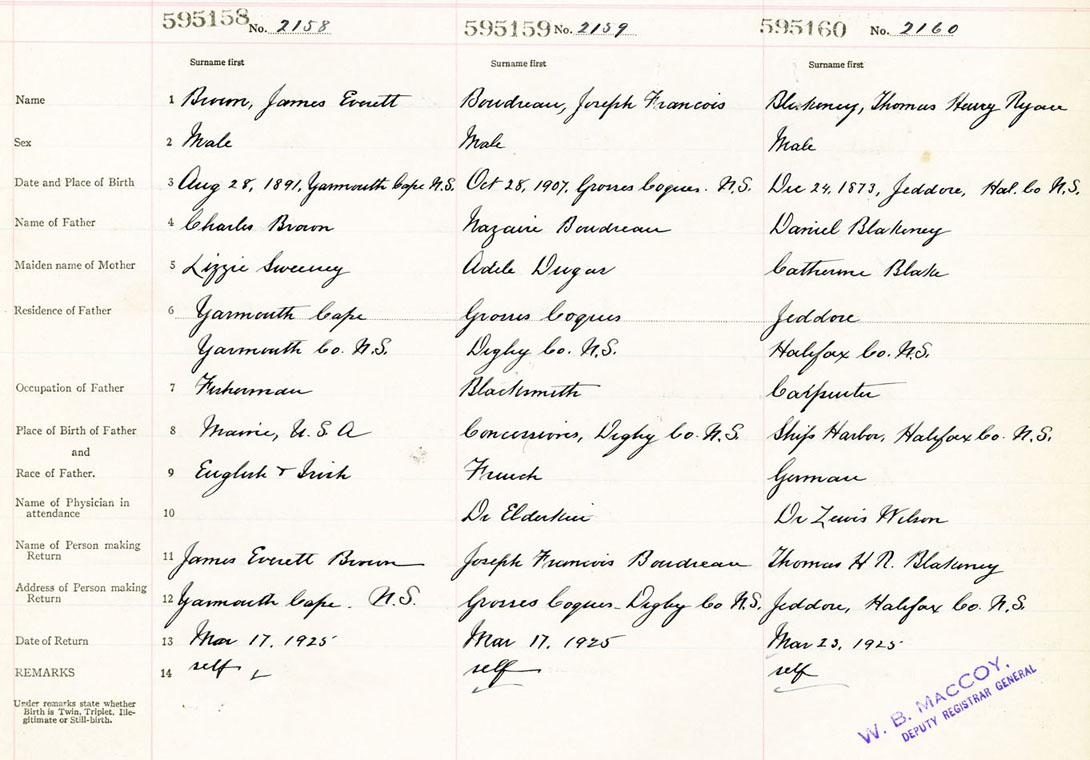 595158 No. 2158 595159 No. 2159 595160 No. 2160
Surname first Surname first Surname first
Name 1 Brown, James Everett Boudreau, Joseph Francois Blakeney, Thomas Henry Ryan
Sex 2 Male Male Male
Date and Place of Birth 3 Aug 28, 1891, Yarmouth Cape N.S. Oct 28, 1907, Grosses Coques. N.S. Dec 24, 1873, Jeddore, Hal. Co N.S.
Name of Father 4 Charles Brown Nazaire Boudreau Daniel Blakeney
Maiden name of Mother 5 Lizzie Sweeney Adele Dugas Catherine Blake
Residence of Father 6 Yarmouth Cape Grosses Coques Jeddore
Yarmouth Co. N.S. Digby Co. N.S. Halifax Co. N.S.
Occupation of Father 7 Fisherman Blacksmith Carpenter
Place of Birth of Father 8 Maine, U.S.A Concessions, Digby Co. N.S. Ship Harbor, Halifax Co. N.S.
and
Race of Father. 9 English + Irish French German
Name of Physician in
attendance 10 Dr Elderkin Dr Lewis Wilson
Name of Person making
Return 11 James Everett Brown Joseph Francois Boudreau Thomas H R. Blakeney
Address of Person making
Return 12 Yarmouth Cape. N.S. Grosses Coques - Digby Co N.S. Jeddore, Halifax Co. N.S.
Date of Return 13 Mar 17, 1925 Mar 17, 1925 Mar 23, 1925
REMARKS 14 self self self
Under remarks state whether
Birth is Twin, Triplet, Ille-
gitimate or Still-birth.
W. B. MACCOY,
DEPUTY REGISTRAR GENERAL